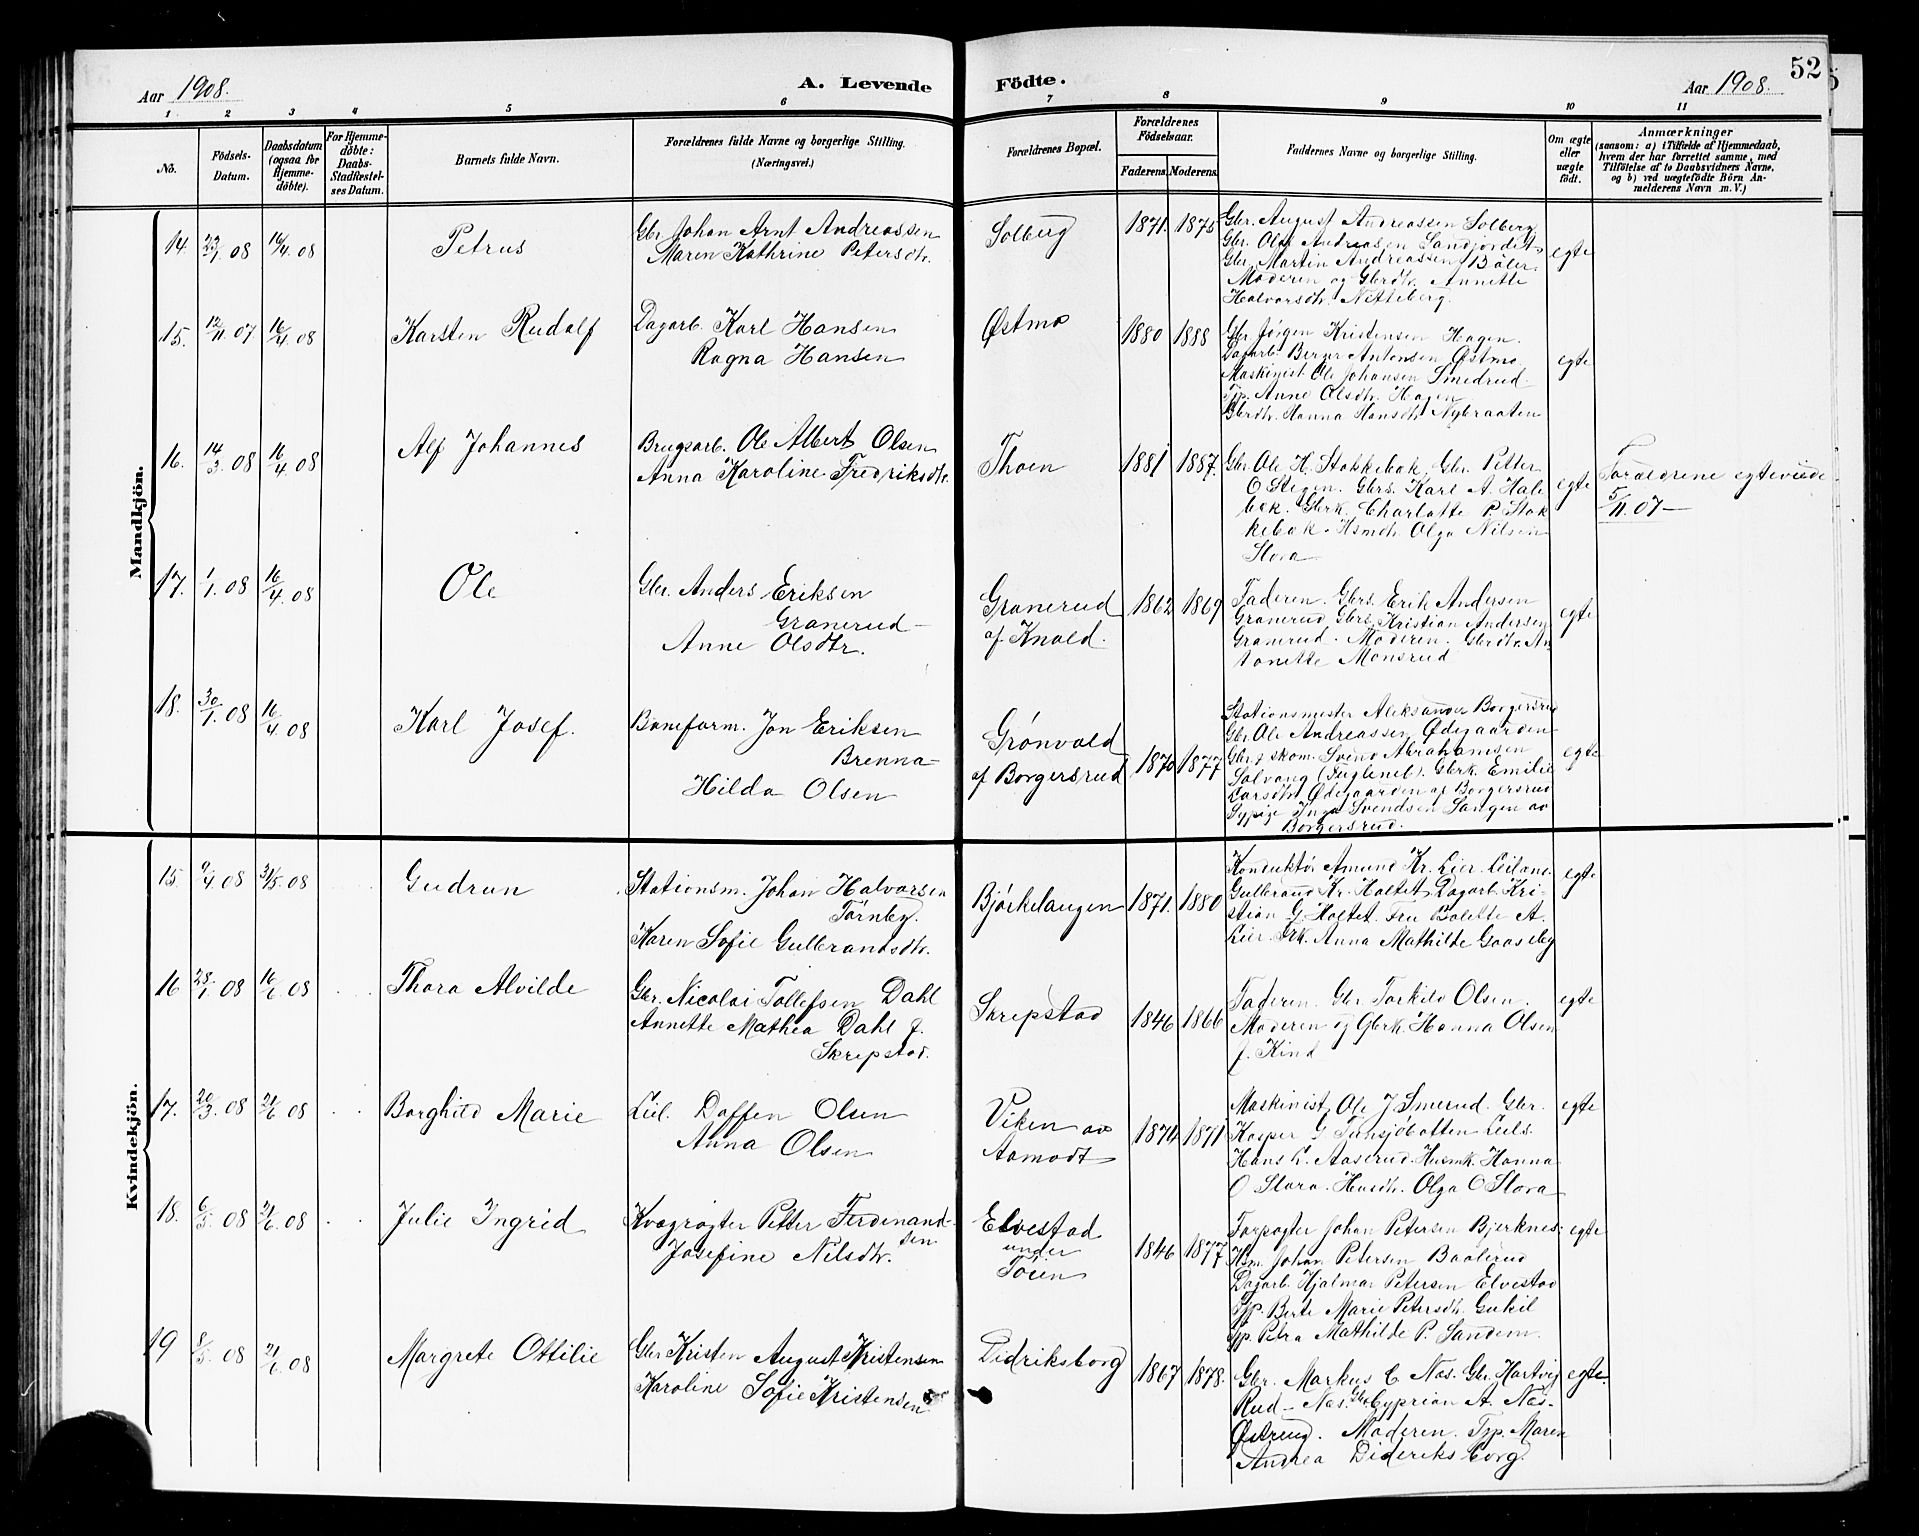 52
Aar 1908.
A. Levende Födte.
Aar 1908.
1 2 3 4 5 6 7 8 9 10 11
No.
Födsels-Datum.
Daabsdatum (ogsaa for Hjemme-döbte).
For Hjemme-döbte: Daabs-Stadfæstel-ses Datum.
Barnets fulde Navn.
Forældrenes fulde Navne og borgerlige Stilling.
(Næringsvei.)
Forældrenes Bopæl.
Forældrenes Födselsaar.
Faderens. Moderens.
Faddernes Navne og borgerlige Stilling.
Om ægte eller uægte födt.
Anmærkninger
(saasom: a) i Tilfælde af Hjemmedaab,
hvem der har forrettet samme, med
Tilföielse af to Daabsvidners Navne,
og b) ved uægtefödte Börn An-
melderens Navn m. V.)
Mandkjön.
14. 23/1 08 16/4 08 Petrus
Gbr. Johan Arnt Andreassen
Maren Kathrine Petersdtr.
Solberg 1871. 1875
Gbr. August Andreassen Solberg
Gbr. Olaf Andreassen Sandjordet
Gbr. Martin Andreassen Böler
Moderen og Gbrdtr. Annette
Halvorsdtr. Netteberg.
egte
15. 12/11 07 16/4 08 Karsten Rudolf
Dagarb. Karl Hansen
Ragna Hansen
Østmo 1880 1888
Gbr. Jørgen Kristensen Hagen.
Dagarb. Berger Antonsen Østmo
Maskinist Ole Johansen Smedrud.
Tjp. Anne Olsdtr. Hagen
Gbrdtr. Hanna Hansdtr. Nybraaten
egte
16. 14/3 08 16/4 08 Alf Johannes
Brugsarb. Ole Albert Olsen
Anna Karoline Fredriksdtr.
Thoen 1881 1887.
Gbr. Ole H. Stokkebæk. Gbr. Petter
O Stegen. Gbrs. Karl A. Hale
bæk. Gbrk. Charlotte P. Stok
kebæk. Hsmdtr. Olga Nilsen
Slora
egte
Forældrene egteviede
5/11 07
17. 1/1 08 16/4 08 Ole
Gbr. Anders Eriksen
Granerud
Anne Olsdtr.
Granerud
af Knold.
1862 1869
Faderen. Gbrs. Erik Andersen
Granerud Gbrs. Kristian Andersen
Granerud. Moderen. Gbrdtr. An
tonette Monsrud
egte
18. 30/1 08 16/4 08 Karl Josef.
Baneform. Jon Eriksen
Brenna
Hilda Olsen
Grønvold
af Borgersrud
1870 1877
Stationsmester Aleksander Borgersrud
Gbr. Ole Andreassen Ødegaarden
Gbr. & skom. Svend Abrahamsen
Solvang. Gbrk. Emilie
Larsdtr. Ødegaarden af Borgersrud
Sypige Inga Svendsen Sangen av
Borgersrud.
egte
Kvindekjön.
15. 9/4 08 31/5 08 Gudrun
Stationsm. Johan Halvorsen
Tørnby.
Karen Sofie Gulbrandsdtr.
Bjørkelangen 1871. 1880
Konduktør Amund Kr. Lier.
Gulbrand Kr. Holtet. Dagarb. Kri-
stian G. Holtet. Fru Bolette A.
Lier. Anna Mathilde Gaaseby
egte
16 28/1 08 16/6 08 Thora Alvilde
Gbr. Nicolai Tollefsen Dahl
Annette Mathea Dahl f.
Skrepstad.
Skrepstad 1846 1866
Faderen. Gbr. Torkild Olsen.
Moderen og Gbrk. Hanna Olsen
f. Kind
egte
17. 20/3 08 21/6 08 Borghild Marie
Leil. Daffen Olsen
Anna Olsen
Viken av
Aamodt
1874 1871
Maskinist Ole J Smerud. Gbr.
Kasper G. Tunsjøbotten Leils.
Hans L. Aaserud. Husmk. Hanna
O Slora. Husdtr. Olga O Slora
egte
18. 6/5 08 21/6 08 Julie Ingrid
Kvægrøgter Petter Ferdinand-
sen
Josefine Nelsdtr.
Elvestad
under
Töien
1846 1877
Forpagter Johan Petersen Bjerknes
Hsm. Johan Petersen Baalerud
Dagarb. Hjalmar Petersen Elvestad
Tjp. Berte Marie Petersdtr. Gukil
Tjp. Petra Mathilde P. Sandem.
egte
19 8/5 08 21/6 08 Margrete Ottilie
Gbr Kristen August Kristensen
Karoline Sofie Kristensen.
Didriksborg 1867 1878.
Gbr. Markus C Næs. Gbr. Hartvig
Rud- Næs. Gbr Cyprian A. Næs-
Østreng. Moderen. Tjp. Maren
Andrea Dideriksborg.
egte.